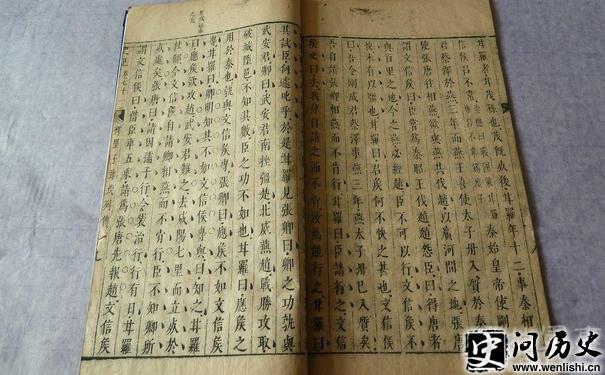 甘羅者甘茂孫也茂既死後甘羅年十二事秦相
信侯呂不韋秦始皇帝使剛
君蔡澤於燕三年而燕王喜使太子丹入質於秦
使張唐往相燕欲與燕共伐趙以廣河間之地張唐
謂文信侯曰臣嘗為秦昭王伐趙趙怨臣曰得唐者
與百里之地今之燕必經趙臣不可以行文信侯
快未有以彊也甘羅曰君侯何不快之甚也文信侯
曰吾令剛成君蔡澤事燕三年燕太子丹已入質矣
吾自請張卿相燕而不肯行甘羅曰臣請行之
侯叱曰去我身自請之而不肯女焉能行之甘羅
其試臣何遽叱乎於是甘羅見張卿曰卿之功孰與
武安君卿曰武安君南挫彊楚北威燕趙戰勝攻取
破城墮邑不知其數臣之功不如也甘羅曰應侯之
用於秦也孰與文信侯專張卿曰應侯不如文信侯
專甘羅曰卿明知其不如文信侯專與曰知之甘羅
曰應侯欲攻趙武安君難之去咸陽七里而立死於
杜郵今文信侯自請卿相燕而不肯行臣不知卿所
死處矣張唐曰請因孺子行令裝治行行有日甘羅
謂文信侯曰借臣車五乘請為張唐先報趙文信侯
樗里子甘茂列傳
史问历史
www.wenlishi.cn